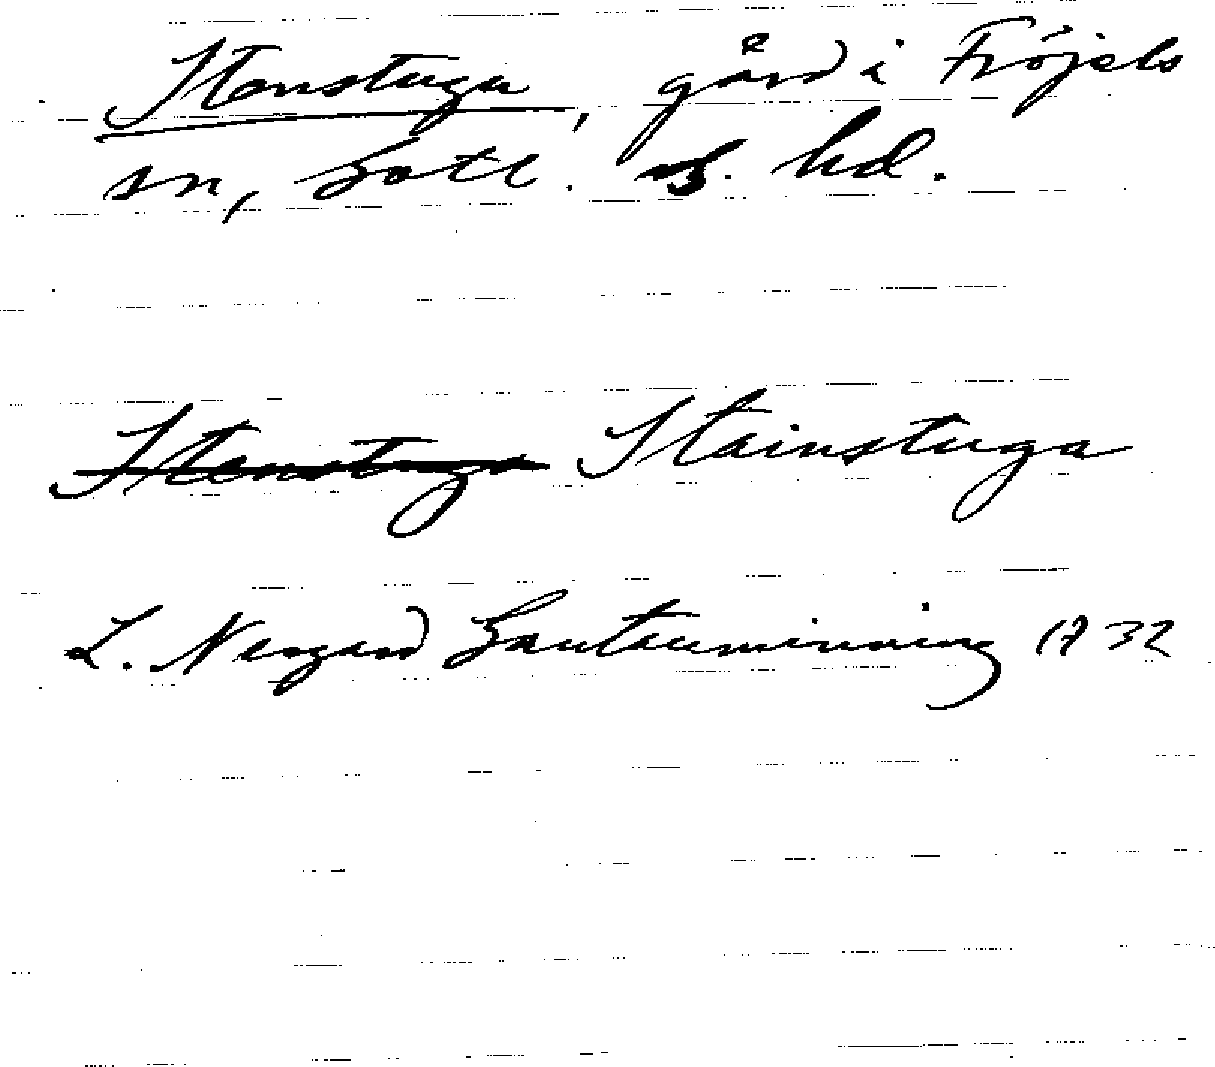 Stenstugu, gård i Fröjels
sn, Gotl. s. hd.
Stenstuga Stainstuga
L. Nergård Gautauminning 1732